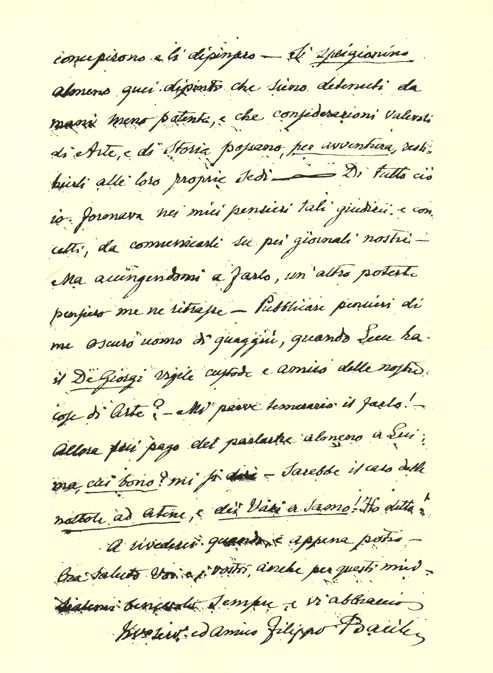 concepirono e li dipinsero — Si sprigionino
almeno quei dipinti che sieno detenuti da
mani meno potenti, e che considerazioni valevoli
di Arte, e di Storia possano, per avventura, resti-
tuirli alle loro proprie sedi — Di tutto ciò
io formava nei miei pensieri tali giudizii e con
cetti, da comunicarli su pei giornali nostri —
Ma accingendomi a farlo, un'altro potente
pensiero me ne ritrasse — Pubblicare pensieri di
me oscuro uomo di quaggiù, quando Lecce ha
il De Giorgi vigile custode e amico delle nostre
cose di Arte? — Mi parve temerario il farlo! —
Allora fui pago del parlarne almeno a Lui;
ma, cui bono? mi si dirà — Sarebbe il caso delle
nottole ad Atene, e dei Vasi a Samo! Ho detto!
A rivederci quando e appena potrò —
Ora saluto Voi e i vostri, anche per questi miei
sempre, e vi abbraccio
ed Amico Filippo